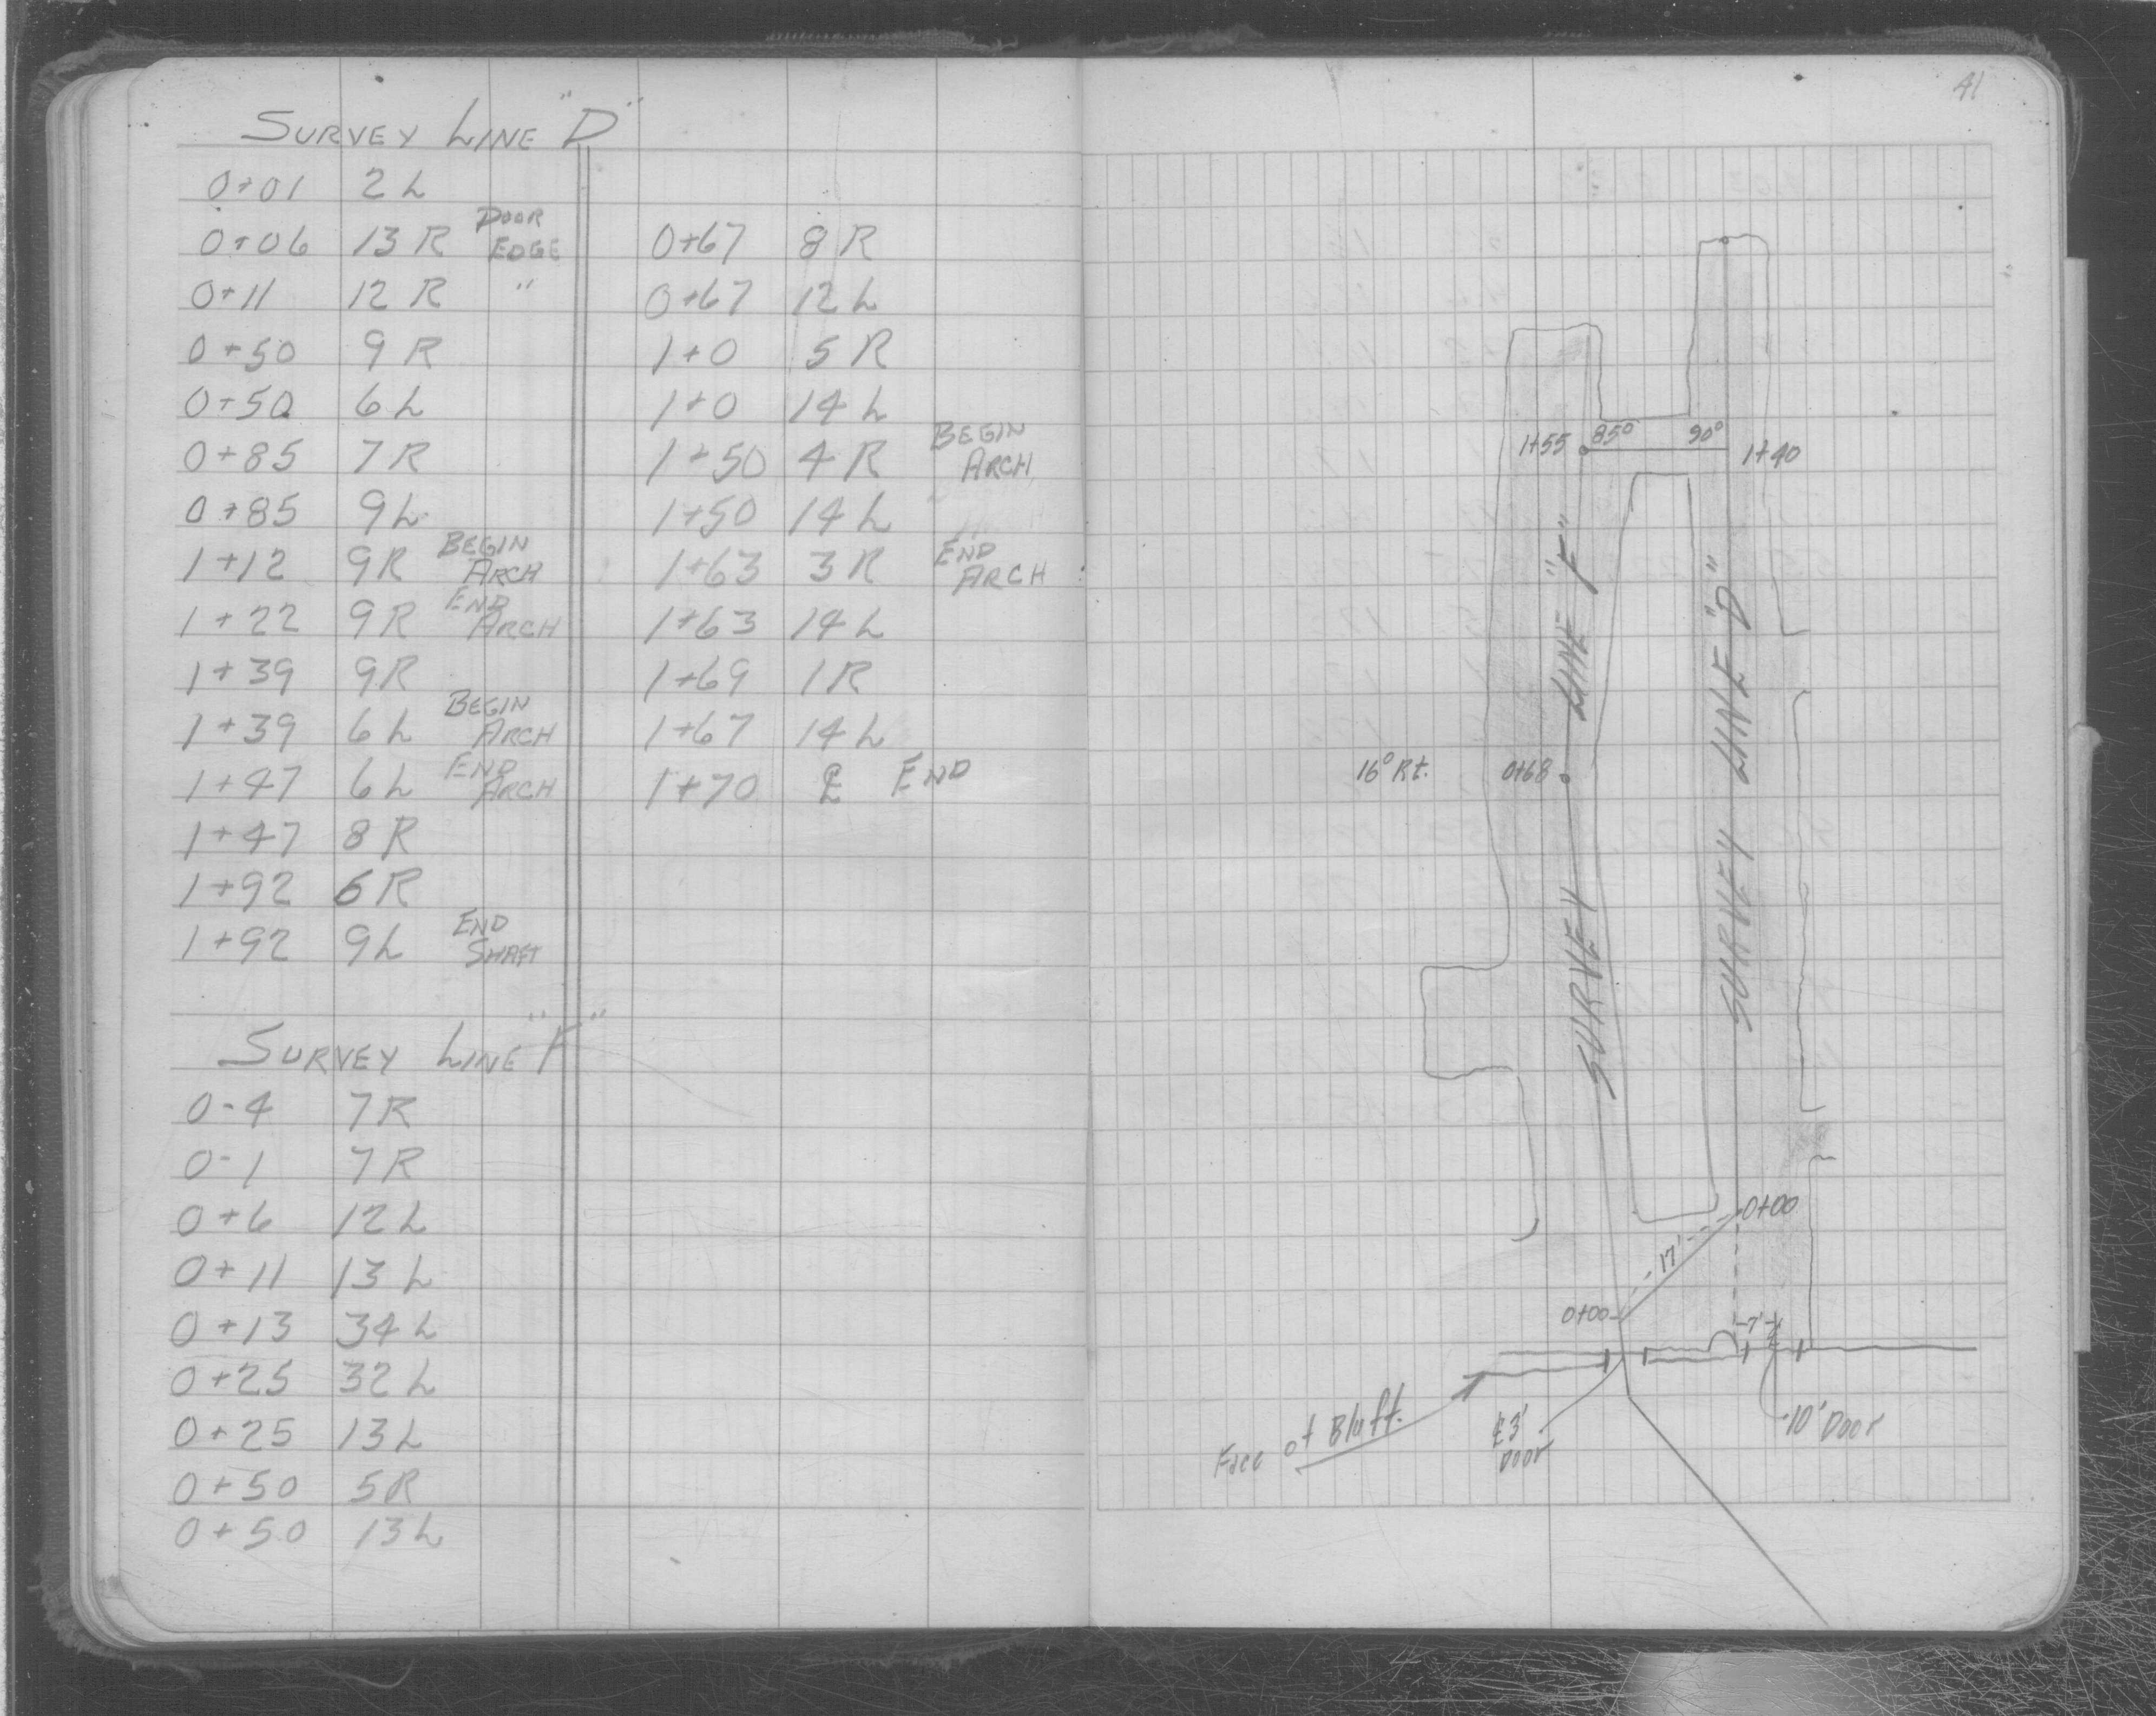 SURVEY LINE "D"
0+01 2 L
0+06 13 R DOOR EDGE
0+11 12 R "
0+50 9 R
0+50 6 L
0+85 7 R
0+85 9 L
1+12 9 R BEGIN ARCH
1+22 9 R END ARCH
1+39 9 R
1+39 6 L BEGIN ARCH
1+47 6 L END ARCH
1+47 8 R
1+92 6 R
1+92 9 L END SHAFT
SURVEY LINE "F"
0-4 7 R
0-1 7 R
0+6 12 L
0+11 13 L
0+13 34 L
0+25 32 L
0+25 13 L
0+50 5 R
0+50 13 L
0+67 8 R
0+67 12 L
1+0 5 R
1+0 14 L
1+50 4 R BEGIN ARCH
1+50 14 L
1+63 3 R END ARCH
1+63 14 L
1+69 1 R
1+67 14 L
1+70 ℄ END
41
1+55 85° 90° 1+40
SURVEY LINE "F"
SURVEY LINE "D"
16° Rt. 0+68
0+00
17'
0+00
7'
Face of Bluff.
℄ 3' Door
10' Door